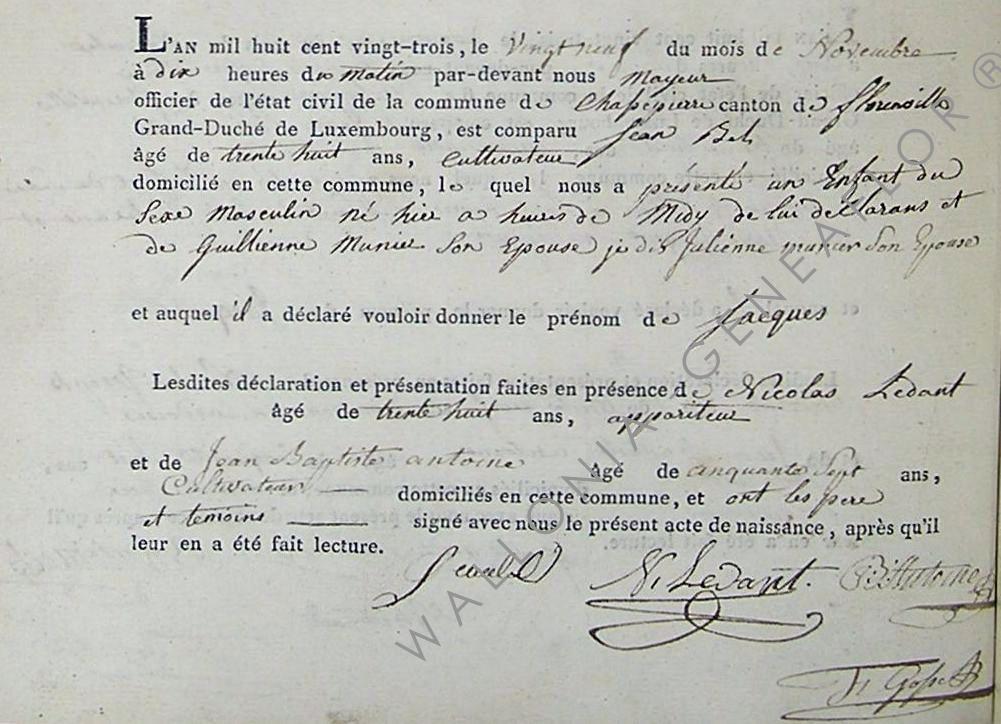 L'AN mil huit cent vingt-trois, le vingt neuf du mois de Novembre
à dix heures du matin par-devant nous mayeur
officier de l'état civil de la commune de Chassepierre canton de florenville
Grand-Duché de Luxembourg, est comparu Jean
âgé de trente huit ans, Cultivateur
domicilié en cette commune, le quel nous a présenté un Enfant du
Sexe Masculin né hier a heures de Midy de lui déclarans et
de Guillienne Munier Son Epouse je dis Julienne munier Son Epouse
et auquel il a déclaré vouloir donner le prénom de Jacques
Lesdites déclaration et présentation faites en présence de Nicolas Ledant
âgé de trente huit ans, appariteur
et de Jean Baptiste antoine âgé de cinquante Sept ans,
Cultivateur domiciliés en cette commune, et ont les pere
et temoins signé avec nous le présent acte de naissance, après qu'il
leur en a été fait lecture.
N. Ledant. JBAntoine
WALLONIA GENEALOR ®